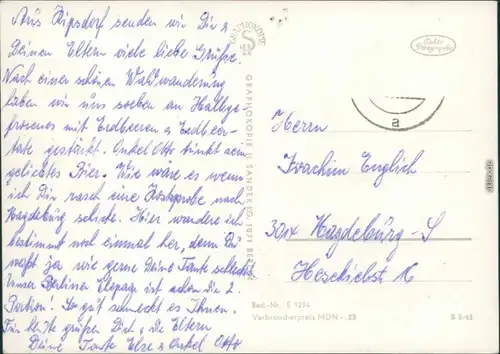 Aus Kipsdorf senden wir Dir &
Deinen Eltern viele liebe Grüße.
Nach einer schönen Waldwanderung
haben wir uns soeben an Halbge-
frorenes mit Erdbeeren & Erdbeer-
torte gestärkt. Onkel Otto trinkt sein
geliebtes Bier. Wie wäre es wenn
ich Dir rasch eine Kostprobe nach
Magdeburg schicke. Hier wandere ich
bestimmt noch einmal her, denn Du
weißt ja wie gerne Deine Tante schleckt
Unser Berliner Ehepaar ist schon die 2.
Portion! So gut schmeckt es Ihnen.
Für heute grüßen Dich & die Eltern
Deine Tante Else & Onkel Otto
GRAPHOKOPIE
GRAPHOKOPIE H. SANDER KG, 1071 BERLIN
Echte
Fotographie
a
Herrn
Joachim Englich
301x Magdeburg-S
Best.-Nr. S 1254
Verbraucherpreis MDN -.25